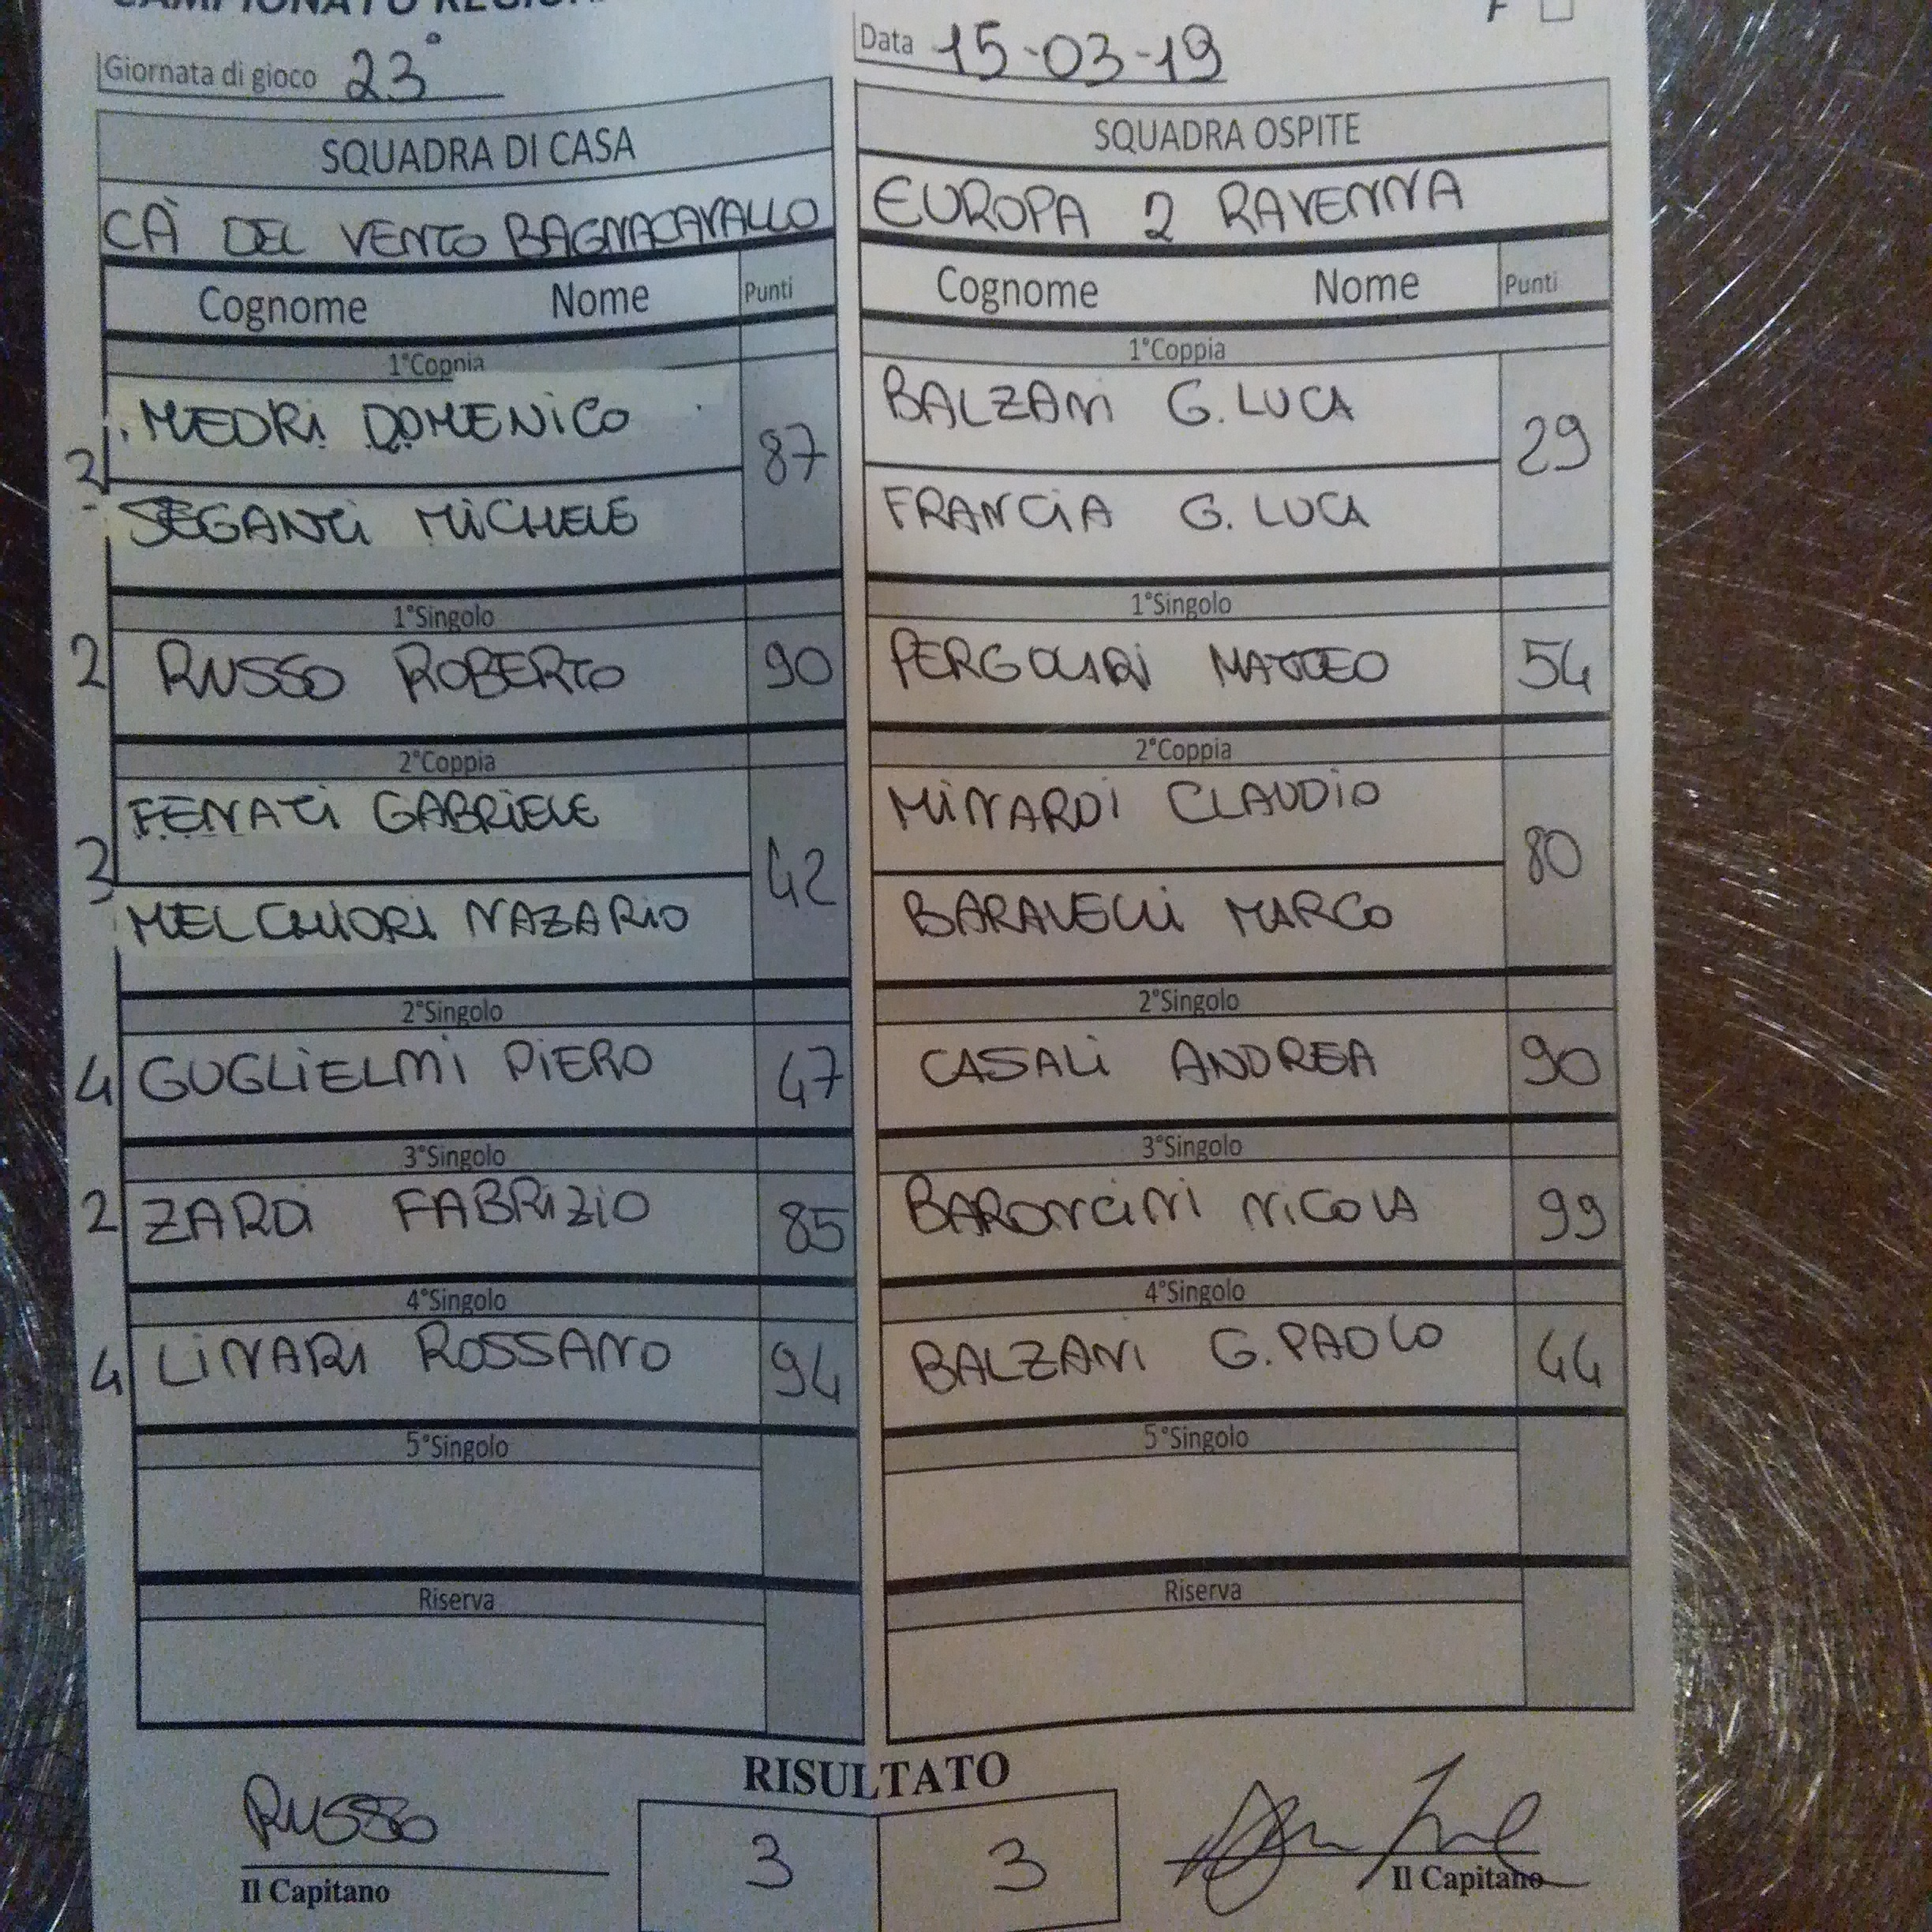 Giornata di gioco 23°
Data 15-03-19
SQUADRA DI CASA
SQUADRA OSPITE
CÀ DEL VENTO BAGNACAVALLO
EUROPA 2 RAVENNA
Cognome Nome Punti
Cognome Nome Punti
1°Coppia
1°Coppia
MEDRI DOMENICO
BALZANI G. LUCA
2 87
29
SEGANTI MICHELE
FRANCIA G. LUCA
1°Singolo
1°Singolo
2 RUSSO ROBERTO 90
PERGOLARI MATTEO 54
2°Coppia
2°Coppia
FENATI GABRIELE
MINARDI CLAUDIO
3 42
80
MELCHIORI NAZARIO
BARAVELLI MARCO
2°Singolo
2°Singolo
4 GUGLIELMI PIERO 47
CASALI ANDREA 90
3°Singolo
3°Singolo
2 ZARDI FABRIZIO 85
BARONCINI NICOLA 99
4°Singolo
4°Singolo
4 LINARI ROSSANO 94
BALZANI G. PAOLO 44
5°Singolo
5°Singolo
Riserva
Riserva
RISULTATO
RUSSO
3 3
Il Capitano
Il Capitano